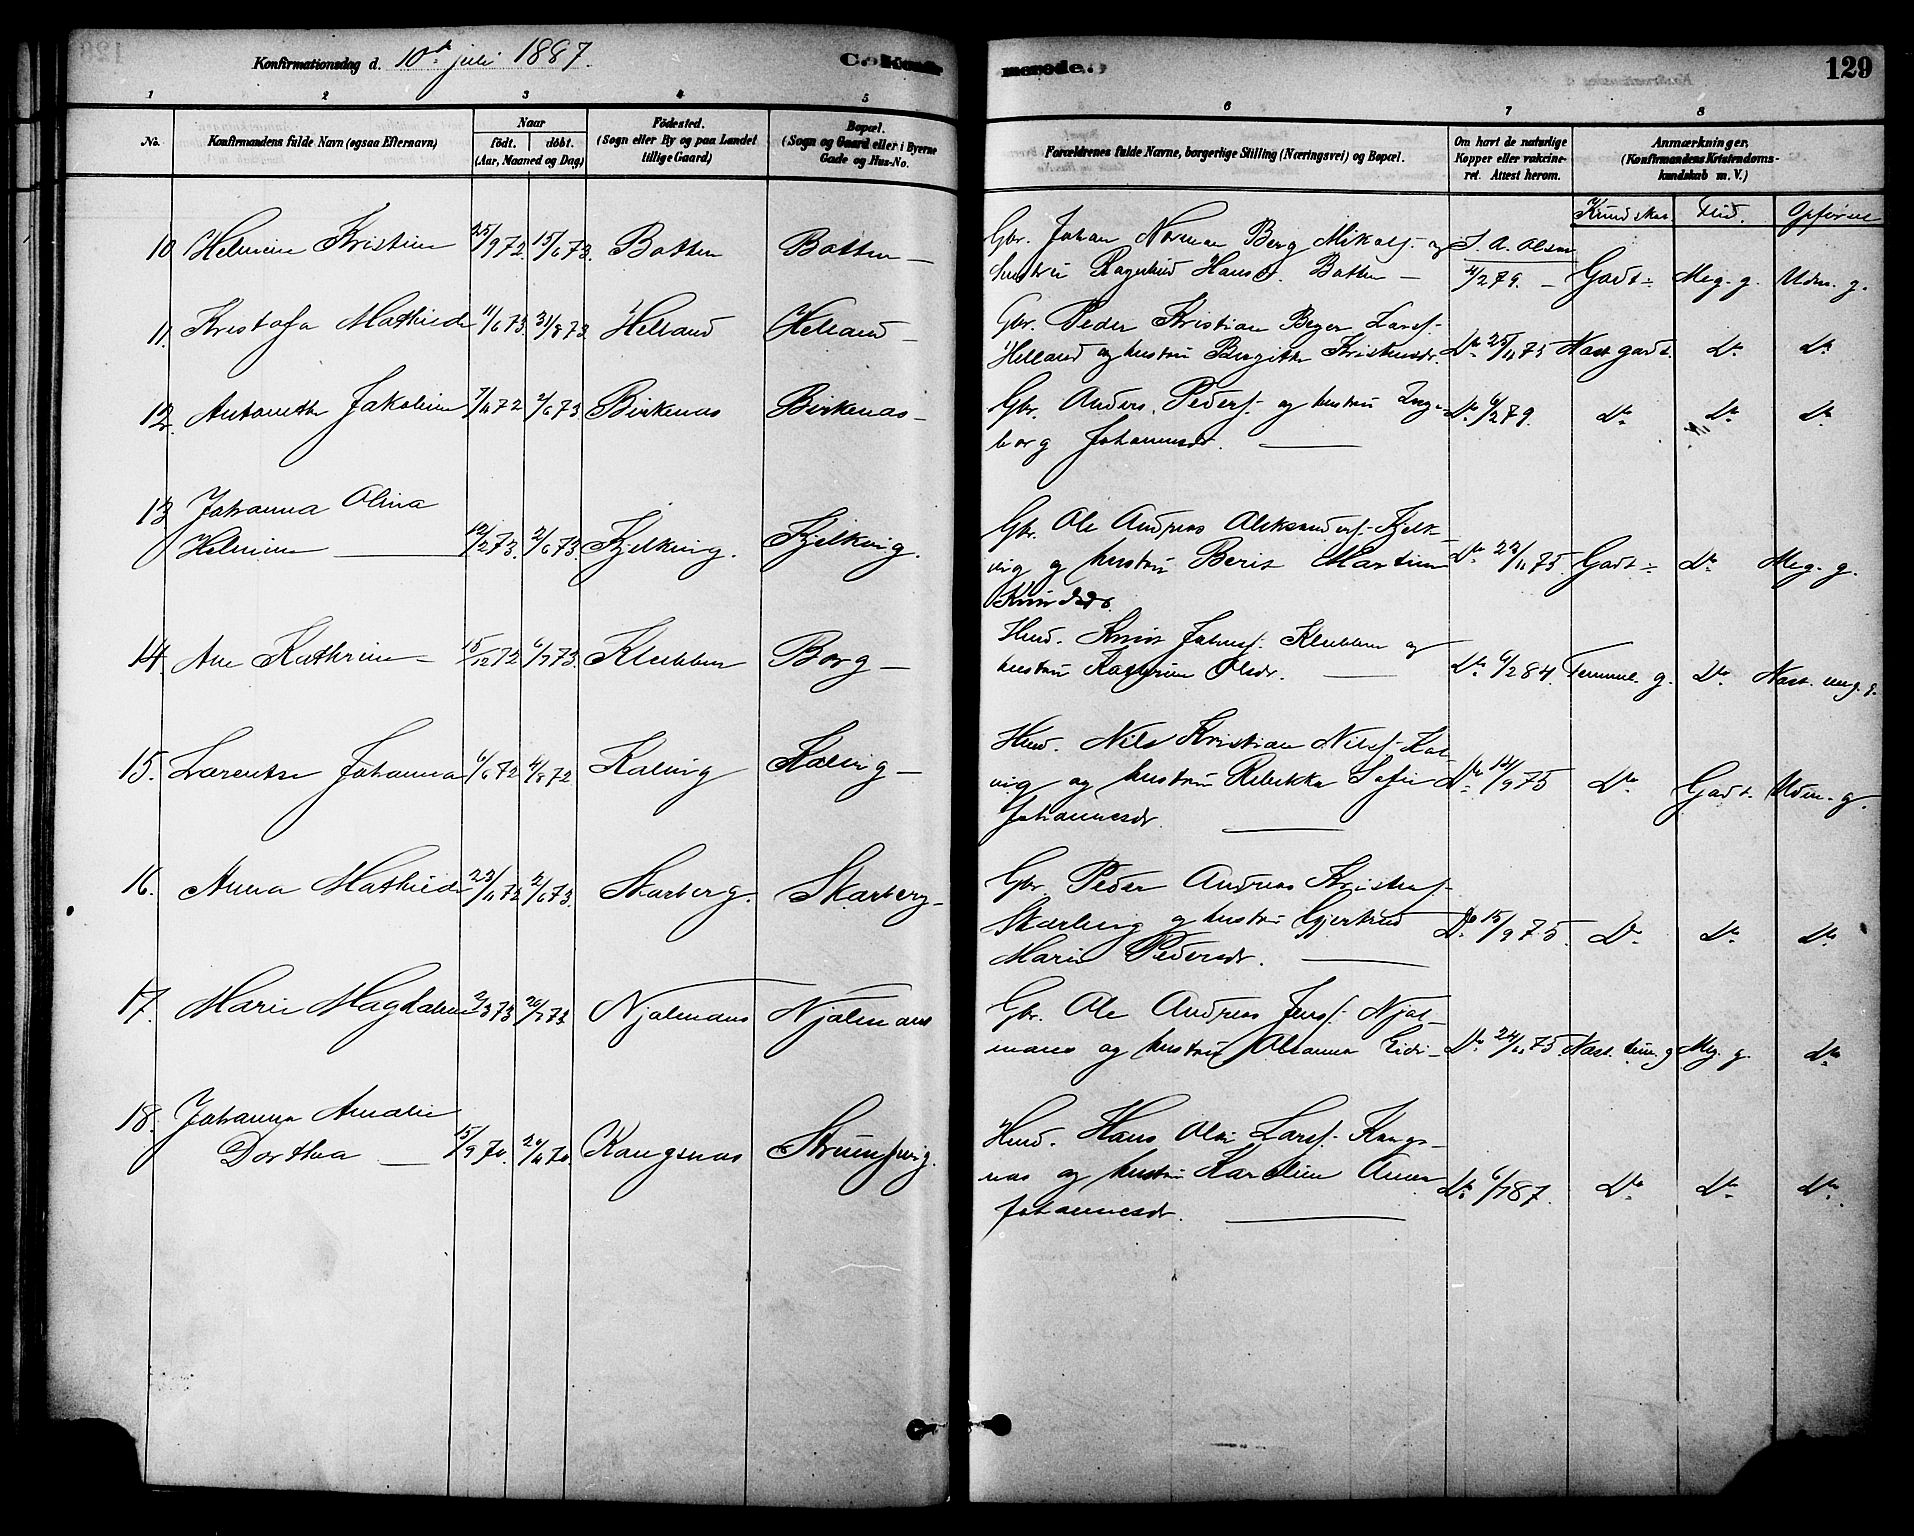 Konfirmationsdag d. 10de juli 1887.
Konfirmerede.
129
1 2 3 4 5 6 7 8
No.
Konfirmandens fulde Navn (ogsaa Efternavn)
Naar
födt. döbt.
(Aar, Maaned og Dag)
Födested.
(Sogn eller By og paa Landet
tillige Gaard)
Bopæl.
(Sogn og Gaard eller i Byerne
Gade og Hus-No.
Forældrenes fulde Navne, borgerlige Stilling (Næringsvei) og Bopæl.
Om havt de naturlige
Kopper eller vaksine-
ret. Attest herom.
Anmærkninger.
(Konfirmandens Kristendoms-
kundskab m. V.)
Kundskab Flid. Opførsel
10 Helmine Kristine 25/9 72 15/6 73. Botten Botten —
Gbr. Johan Norman Berg Mikals. og S. A. Olsen
hustru Ragnhild Hansd. Botten — 4/2 79. — Godt Meg. g. Udm. g.
11. Kristofa Mathilde 11/6 73. 31/8 73. Helland Helland —
Gbr. Peder Kristian Beyer Larss.
Helland og hustru Birgitte Kristensdr. Do 25/11 75 Næst godt. Do Do
12. Antonette Jakobine 7/11 72 2/6 73 Birkenæs Birkenæs —
Gbr. Anders Peders. og hustru Inge- Do 6/2 79. Do Do Do
borg Johannesdr. —
13 Johanna Olina
Helmine — 12/2 73. 2/6 73. Kjelkvig. Kjelkvig.
Gbr. Ole Andreas Aleksanders. Kjelk-
vig og hustru Berit Martine Do 23/11 75. Godt Do Meg. g.
Knudsdr.
14. Ane Kathrine — 15/12 72 6/7 73. Klubben Borg —
Husd. Knut Johns. Klubben og
hustru Kathrine Olsdr. — Do 6/2 84. Temmel. g. Do Næst. meg. g.
15. Larentse Johanna 6/6 72 4/8 72 Kalvig Kalvig —
Husd. Nils Kristian Nilss. Kal-
vig og hustru Rebekka Sofie Do 14/9 75 Do Godt. Udm. g.
Johannesdr. —
16. Anna Mathilde 23/11 72 2/6 73. Skarberg. Skarberg —
Gbr. Peder Andreas Kristens.
Skarberg og hustru Gjertrud Do 15/9 75. Do Do Do
Marie Pedersdr. —
17. Marie Magdalene 2/3 73 20/7 73 Njalmaas Njalmaas
Gbr. Ole Andreas Jenss. Njal-
maas og hustru Olianna Do 24/11 75 Næst. tem. g Meg. g. Do
18. Johanna Amalie
Dorthea — 15/9 70. 20/11 70. Kongsnæs
Husd. Hans Olai Larss. Kongs-
næs og hustru Karoline Anna Do 6/7 87. Do Do Do
Johannesdr. —